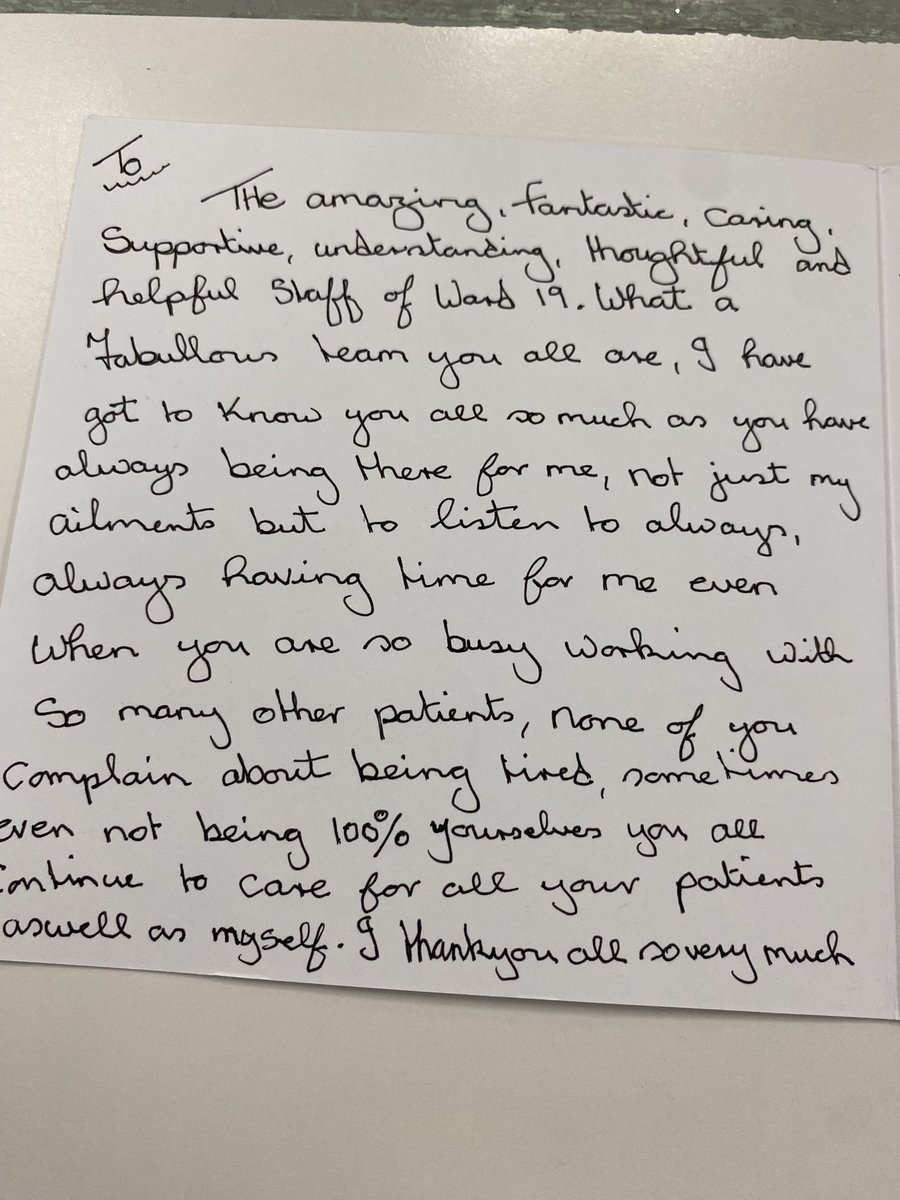 To
THe amazing, fantastic, caring,
Supportive, understanding, thoughtful and
helpful Staff of Ward 19. What a
Fabullous team you all are, I have
got to know you all so much as you have
always being there for me, not just my
ailments but to listen to always,
always having time for me even
when you are so busy working with
So many other patients, none of you
Complain about being tired, sometimes
even not being 100% yourselves you all
Continue to care for all your patients
aswell as myself. I thankyou all so very much